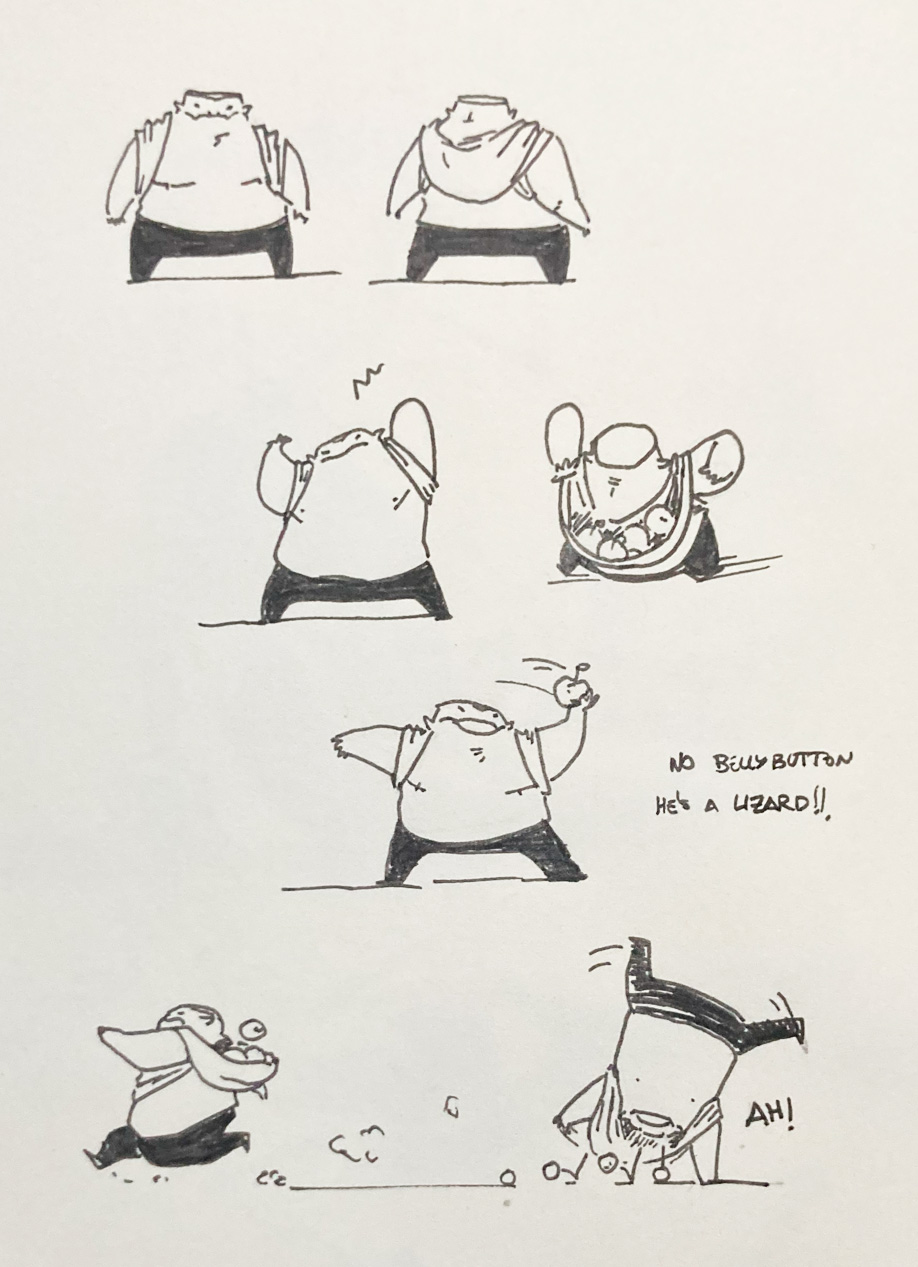 NO BELLYBUTTON
HE'S A LIZARD!!
AH!